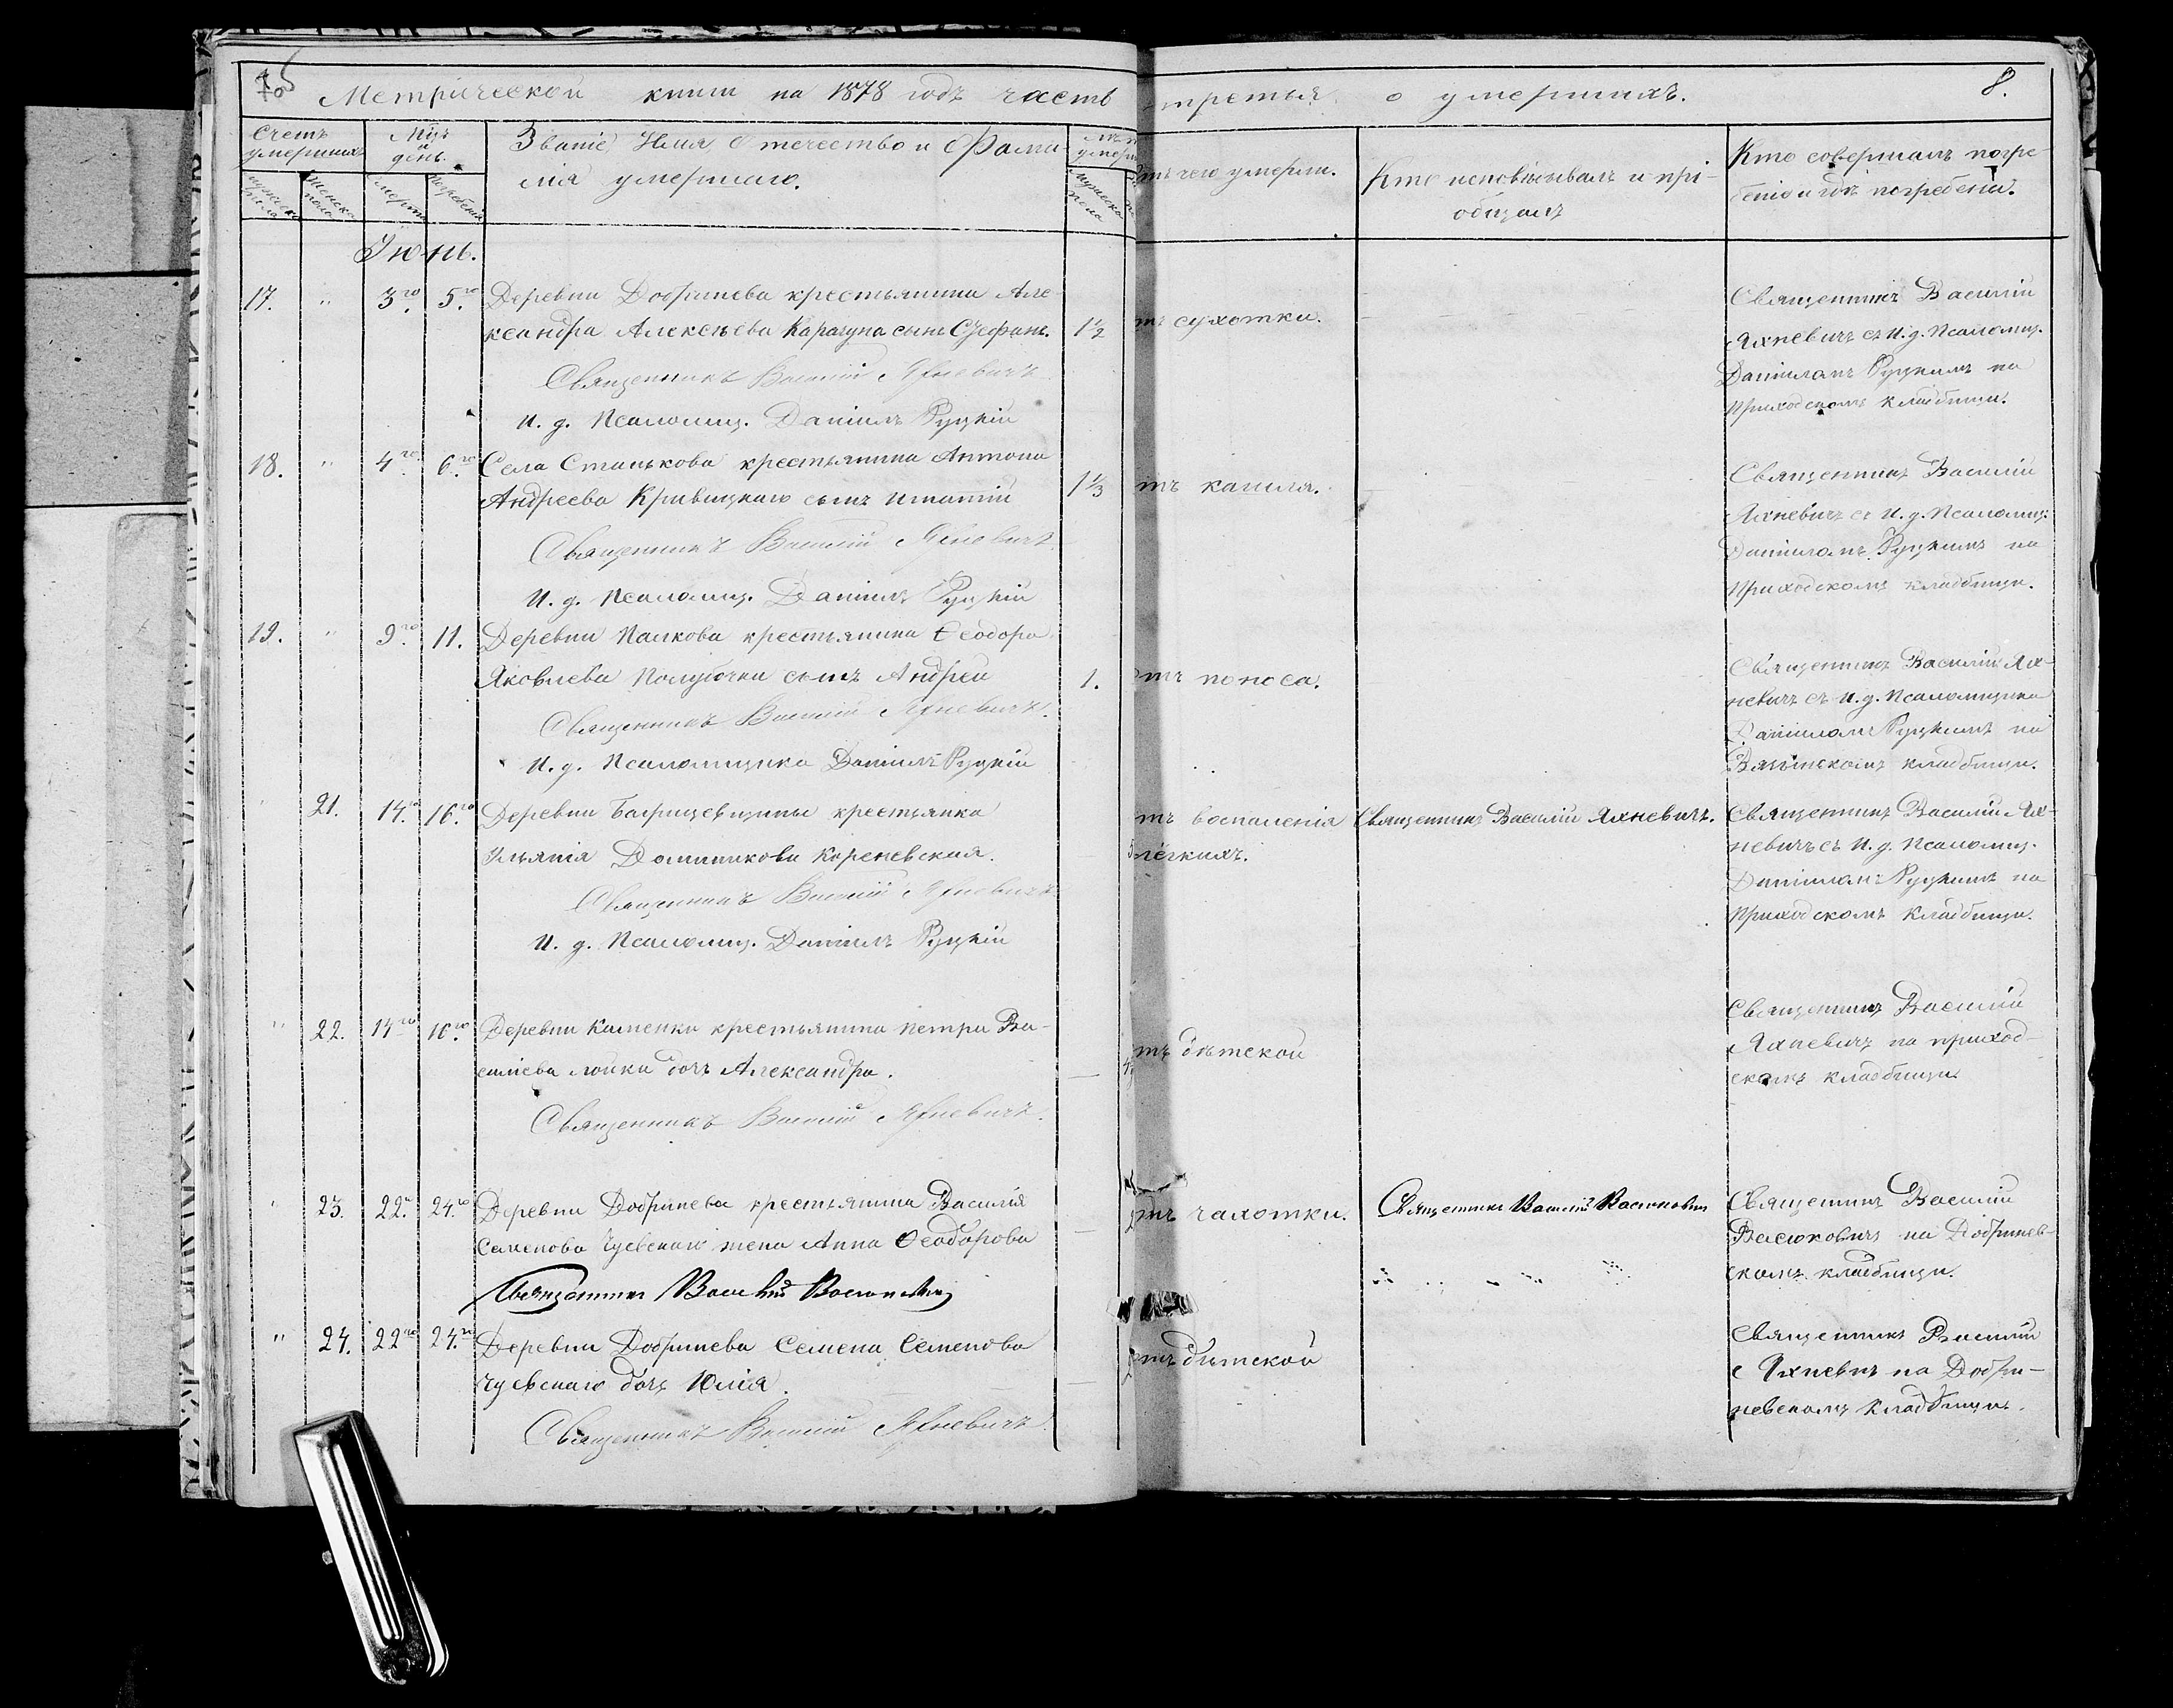 Метрической книги на 1878 годъ часть третья о умершихъ. 8.
Счетъ умершихъ
мужеска пола
женска пола
Мцъ и день.
смерти
погребенія
Званіе Имя Отечество и Фами-
лія умершаго.
мужеска пола
отъ чего умерли.
Кто исповѣдывалъ и прі-
общалъ
Кто совершалъ погре-
беніе и гдѣ погребены.
Іюнь.
17. " 3го. 5.го Деревни Добринева крестьянина Але-
ксандра Алексѣева Карачуна сынъ Стефанъ. 1½ отъ сухотки.
Священникъ Василій Яхневичъ
И. д. Псаломщ. Даніилъ Руцкій
Священникъ Василій
Яхневичъ съ И. д. Псаломщ.
Даніиломъ Руцкимъ на
приходскомъ кладбищи.
18. " 4го. 6.го Села Станькова крестьянина Антона
Андреева Кривицкаго сынъ Игнатій 1⅓ отъ кашля.
Священникъ Василій Яхневичъ
И. д. Псаломщ. Даніилъ Руцкій
Священникъ Василій
Яхневичъ съ И. д. Псаломщ.
Даніиломъ Руцкимъ на
приходскомъ кладбищи.
19. " 9.го 11. Деревни Панкова крестьянина Ѳеодора
Яковлева Полубочки сынъ Андрей 1. отъ поноса.
Священникъ Василій Яхневичъ.
И. д. Псаломщика Даніилъ Руцкій
Священникъ Василій Ях-
невичъ съ И. д. Псаломщика
Даніиломъ Руцкимъ на
кладбищи.
21. 14.го 16.го Деревни крестьянка
Ульянія Доминикова Кореневская.
отъ воспаленія
лёгкихъ.
Священникъ Василій Яхневичъ.
Священникъ Василій Яхневичъ
И. д. Псаломщ. Даніилъ Руцкій
Священникъ Василій Ях-
невичъ съ И. д. Псаломщ.
Даніиломъ Руцкимъ на
приходскомъ кладбищи.
" 22. 14го 16го Деревни Каменки крестьянина Петра Ва-
силіева Лойки дочь Александра.
отъ дѣтской
Священникъ Василій Яхневичъ.
Священникъ Василій
Яхневичъ на приход-
скомъ кладбищи.
" 23. 22. 24.го Деревни Добринева крестьянина Василія
Семенова Чуевскаго жена Анна Ѳеодорова
отъ чахотки.
Священникъ Василій Васюковичъ
Священникъ Василій Васюковичъ
Священникъ Василій
Васюковичъ на Добринев-
скомъ кладбищи.
" 24. 22го 24.го Деревни Добринева Семена Семенова
Чуевскаго дочь Юлія.
отъ дѣтской
Священникъ Василій Яхневичъ.
Священникъ Василій
Яхневичъ на Добри-
невскомъ кладбищи.